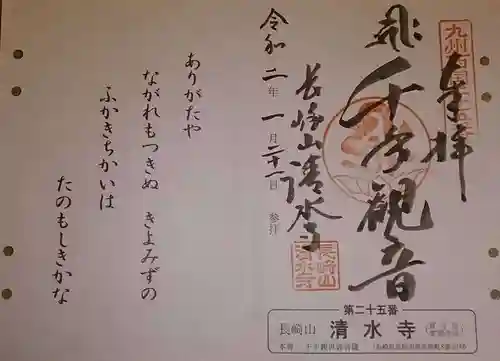 奉拝
千手観音
長崎山清水寺
令和二年一月二十一日参拝
ありがたや
ながれもつきぬ きよみずの
ふかきちかいは
たのもしきかな
長崎山
清水寺
第二十五番
長崎山 清水寺
本尊 千手観世音菩薩